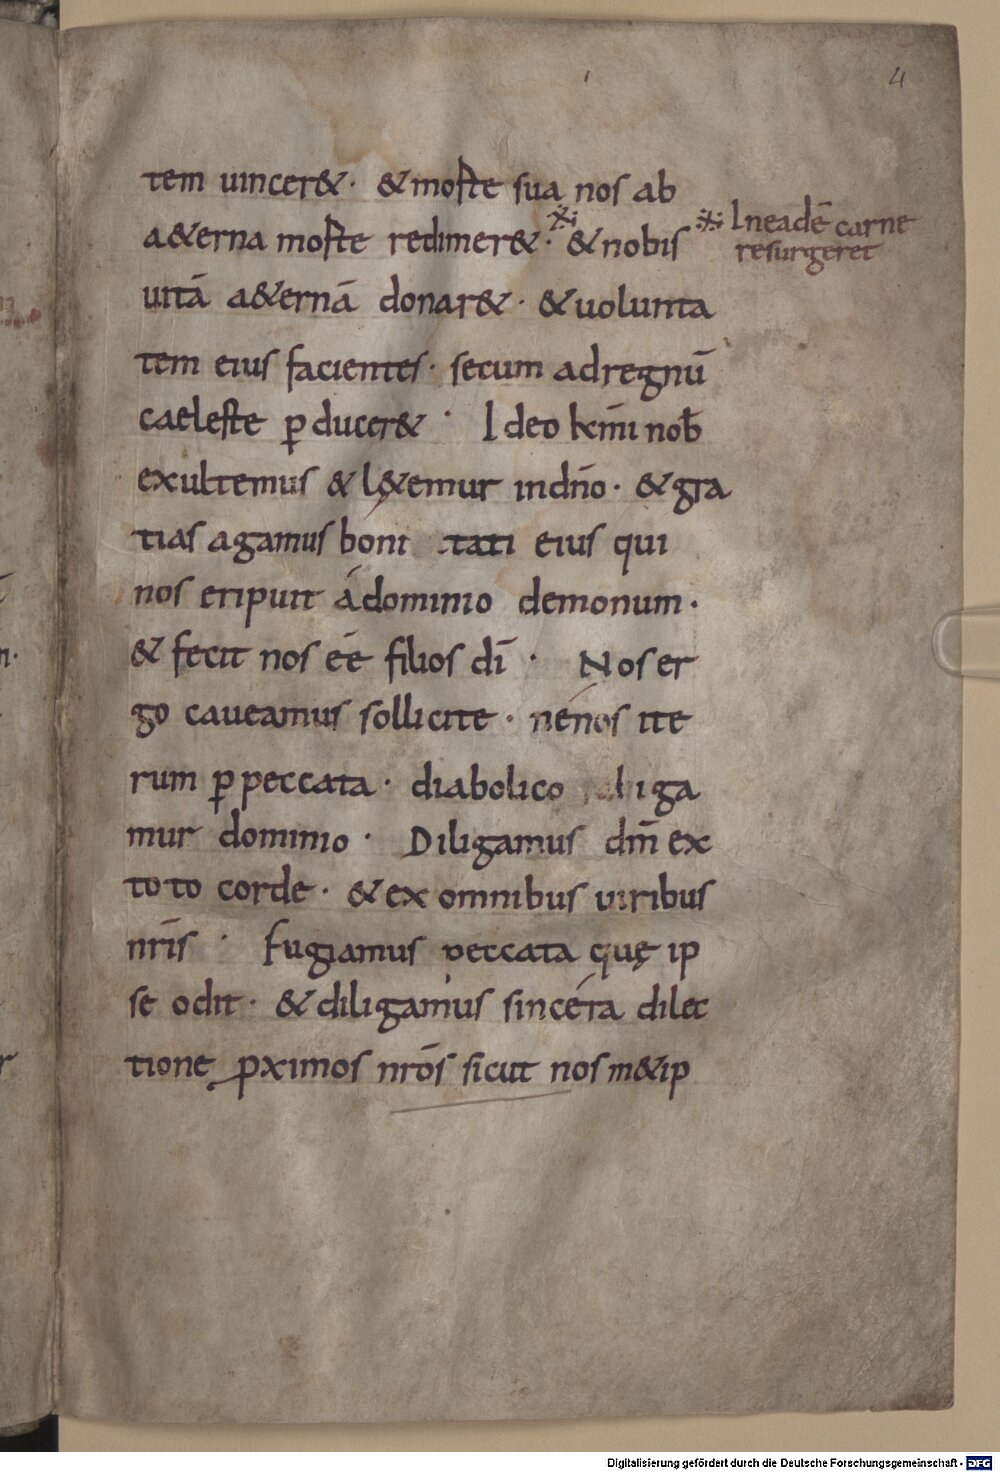 4
tem uincer&· & morte sua nos ab
a&erna morte redimer&· ※ & nobis
※ In eadē carne
resurgeret
uitā a&ernā donar&· & uolunta
tem eius facientes· secum ad regnū
caeleste ꝑducer&· Ideo kꝛ̄mi nob̄
exultemus & l&emur in dn̄o· & gra
tias agamus boni tati eius qui
nos eripuit á dominio demonum·
& fecit nos éé filios dī· Nos er
go caueamus sollicite· né nos ite
rum ꝑ peccata· diabolico liga
mur dominio· Diligamus dm̄ ex
toto corde· & ex omnibus uiribus
nr̄is· Fugiamus peccata quę ip
se odit· & diligamus sincéra dilec
tione ꝓximos nr̄os sicut nosm&ip
Digitalisierung gefördert durch die Deutsche Forschungsgemeinschaft - DFG